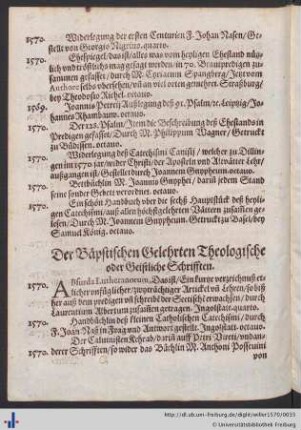 1570. Widerlegung der ersten Centurien F. Johan Nasen/ Ge-
stellt von Georgio Nigrino. quarto.
1570. Ehespiegel/ das ist/ alles was vom heyligen Ehestand nüg-
lich und tröstlichs mag gesagt werden/ in 70. Brautpredigen zu-
sammen gefasset/ durch M. Cyriacum Spangberg/ Jetzt vom
Authore selbs ubersehen/ uñ an viel orten gemehret. Straßburg/
bey Theodosio Rihel. octavo.
1569. Joannis Petreij Außlegung deß 91. Psalm/ 8c. Leipzig/ Jo-
hannes Rhambaw. octavo.
1570. Der 128. Psalm/ Jtem die Beschreibung deß Ehestands in
Predigen gefasset/ Durch M. Philippum Wagner/ Getruckt
zu Büdissen. octavo.
1570. Widerlegung deß Catechismi Canisij/ welcher zu Dillin-
gen im 1570 jar/ wider Christi/ der Aposteln und Altvätter lehr/
außgangen ist/ Gestellet durch Joannem Gnypheum. octavo.
1570. Betbüchlin M. Joannis Gnyphei/ darin jedem Stand
seine sondere Gebett verordnet. octavo.
1570. Ein schön Handbuch uber die sechß Hauptstück deß heyli-
gen Catechismi/ auß allen höchstgelehrten Vättern zusamen ge-
lesen/ Durch M. Joannem Gnypheum. Getruckt zu Basel/ bey
Samuel König. octavo.
Der Bäpstischen Gelehrten Theologische
oder Geistliche Schrifften.
1570. Absurda Lutheranorum, Das ist/ Ein kurtze verzeichnuß et-
licher unfüglicher/ zwyträchtiger Artickel uñ Lehren/ so biß
her auß dem predigen uñ schreibē der Sectischē erwachsen/ durch
Laurentium Albertum zusamen getragen. Ingolstatt. quarto.
1570. Handbüchlin deß kleinen Catholischen Catechismi/ durch
F. Joan Naß in Frag und Antwort gestellt. Ingolstatt. octavo.
1570. Der Calvinisten Kehrab/ durch auß Petri Viretti/ und an-
derer Schrifften/ so wider das Büchlin M. Anthonij Possevini
von
http://dl.ub.uni-freiburg.de/diglit/willer1570/0035
© Universitätsbibliothek Freiburg